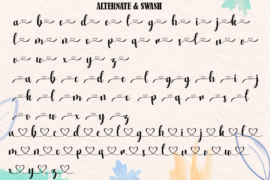 ALTERNATE & SWASH
a b c d e f g h i j k
l m n o p q r s t u v
w x y z
a b c d e f g h i j
k l m n o p q r s t
u v w x y z
a b c d e f g h i j k l
m n o p q r s t u v w
x y z